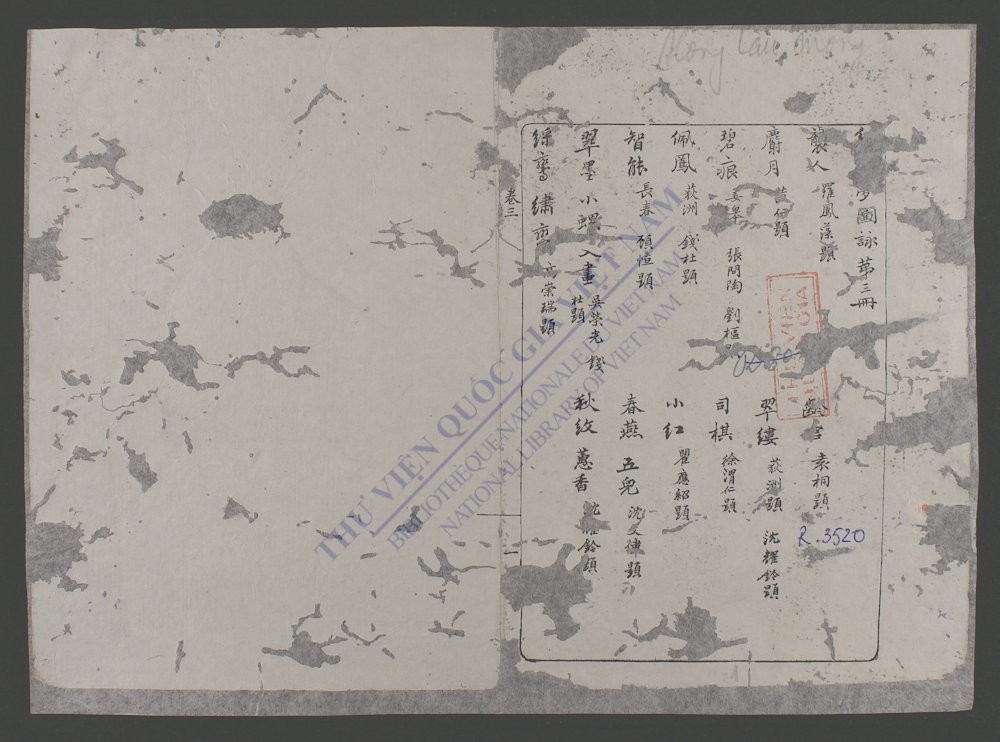 Hong Lau mong
夢圖詠第三冊
襲人 羅鳳藻題 袁桐題
麝月 題 翠縷 荻洲題 沈耀鈴題
碧痕 姜皋 張問陶 劉樞 司棋 徐渭仁題
佩鳳 荻洲 錢杜題 小紅 瞿應紹題
智能 長春 頋恒題 春燕 五兒 沈文偉題
翠墨 小螺 入畫 吳榮光 錢杜題 秋紋 蕙香 沈 鈴題
綵鸞 繡 高崇瑞題
卷三
一
R.3520
THƯ VIỆN QUỐC GIA VIỆT NAM
BIBLIOTHÈQUE NATIONALE DU VIETNAM
NATIONAL LIBRARY OF VIETNAM